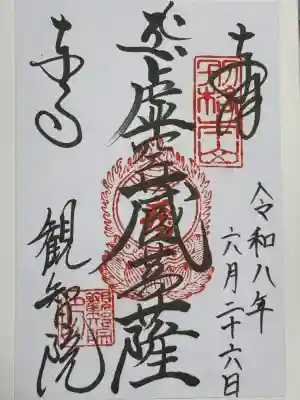 奉拝
令和八年
六月二十六日
虚空蔵菩薩
東寺
観智院